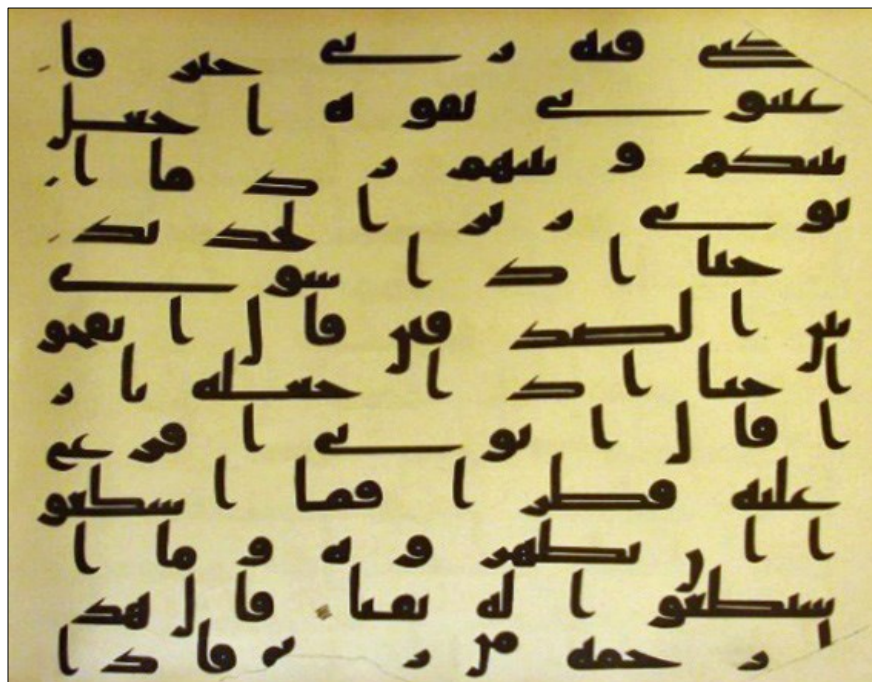 مكنى فيه ربى خير فا
عينونى بقوة اجعل
بينكم وبينهم ردما ا
تونى زبر الحديد
حتا اذا سوى
بين الصدفين قال انفخو
ا حتا اذا جعله نار
ا قال اتونى افرغ
عليه قطرا فما اسطعو
ا ان يظهروه وما ا
ستطعوا له نقبا قال هذ
ا رحمة من ربى فاذا